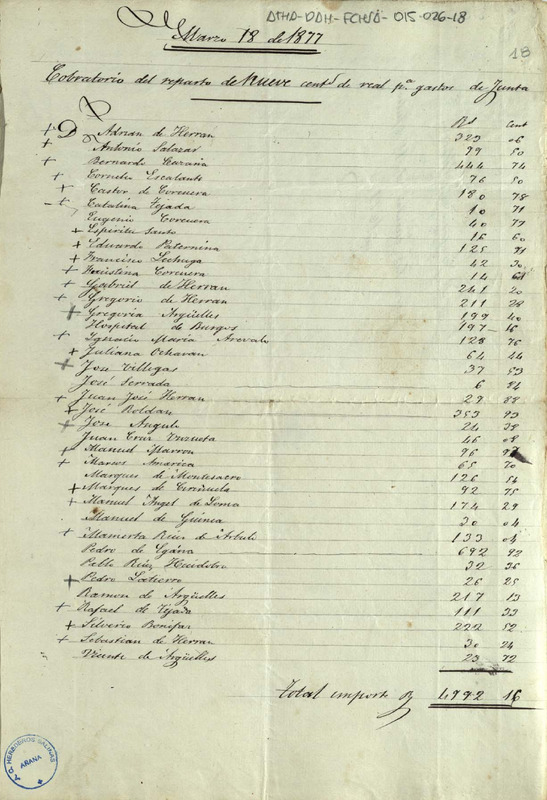 ATHA-DAH-FCHSA-015-026-18
Marzo 18 de 1877
18
Cobratorio del reparto de nueve centˢ de real pª gastos de Junta
Rˢ Cent
+ D Adrian de Herran 323 06
+ Antonio Salazar 79 50
+ Bernardo 444 74
+ Cornelio Escalante 76 50
+ Castor de Corcuera 180 78
- + Catalina Tejada 10 71
Eugenio Corcuera 40 77
+ Espiritu Santo 16 60
+ Eduardo Paternina 125 71
+ Francisco Lechuga 42 30
+ Faustina Corcuera 14
+ Gabriel de Herran 241 20
+ Gregorio de Herran 211 28
+ Gregoria Argüelles 199 40
Hospital de Burgos 197 16
+ Ignacio Maria Arevalo 128 76
+ Juliana Ochavan 64 44
+ Jose Villegas 37 53
José Serrada 6 84
+ Juan José Herran 29 88
+ José Roldan 353 93
+ Jose Angulo 24 38
Juan Cruz 46 08
+ Manuel Marron 96
+ Marcos 65 70
Marques de Montesacro 126 54
+ Marques de Ciriñuela 92 75
+ Manuel Angel de Loma 174 29
Manuel de Guinea 30 04
+ Mamerta Ruiz de 133 04
Pedro de Egaña 692 92
Pablo Ruiz Huidobro 32 36
+ Pedro 26 25
Ramon de Argüelles 217 13
+ Rafael de Tejada 111 33
+ Silverio Bonifaz 222 52
+ Sebastian de Herran 30 24
Vicente de Argüelles 23 72
Total importe R 4992 16
HEREDEROS SALINAS
AÑANA